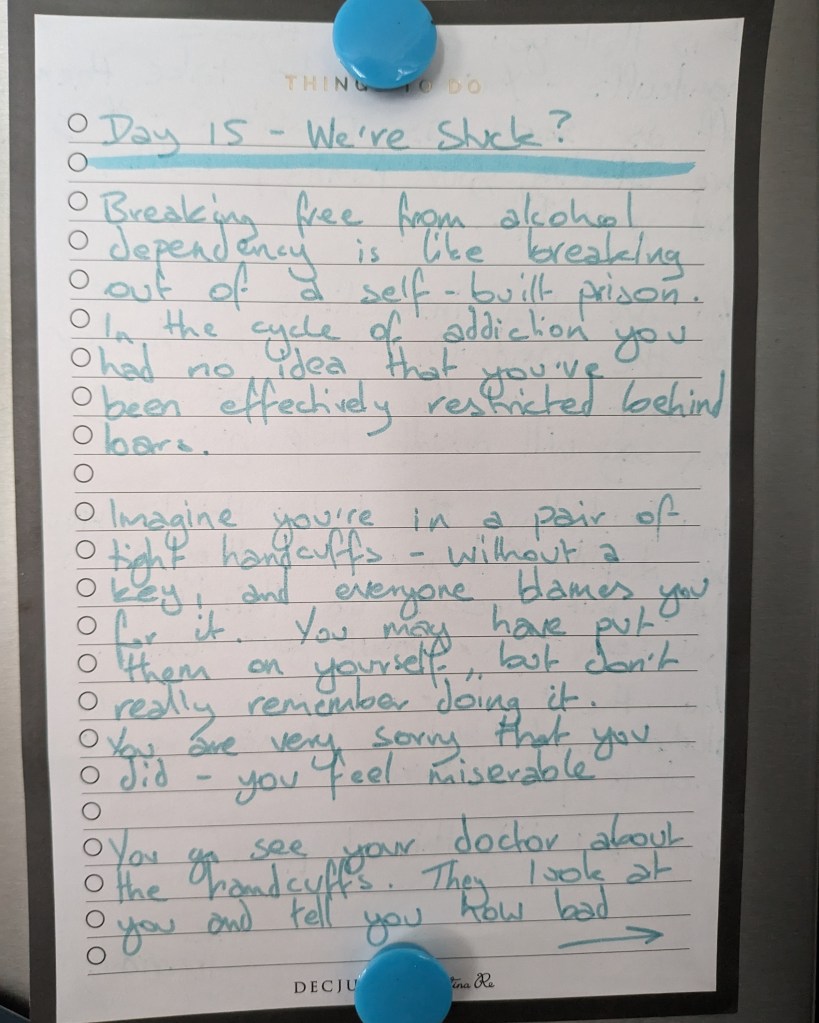 THINGS TO DO
Day 15 - We're Stuck?
Breaking free from alcohol
dependency is like breaking
out of a self-built prison.
In the cycle of addiction you
had no idea that you've
been effectively restricted behind
bars.
Imagine you're in a pair of
tight handcuffs - without a
key, and everyone blames you
for it. You may have put
them on yourself, but don't
really remember doing it.
You are very sorry that you
did - you feel miserable
You go see your doctor about
the handcuffs. They look at
you and tell you how bad
→
DECJU